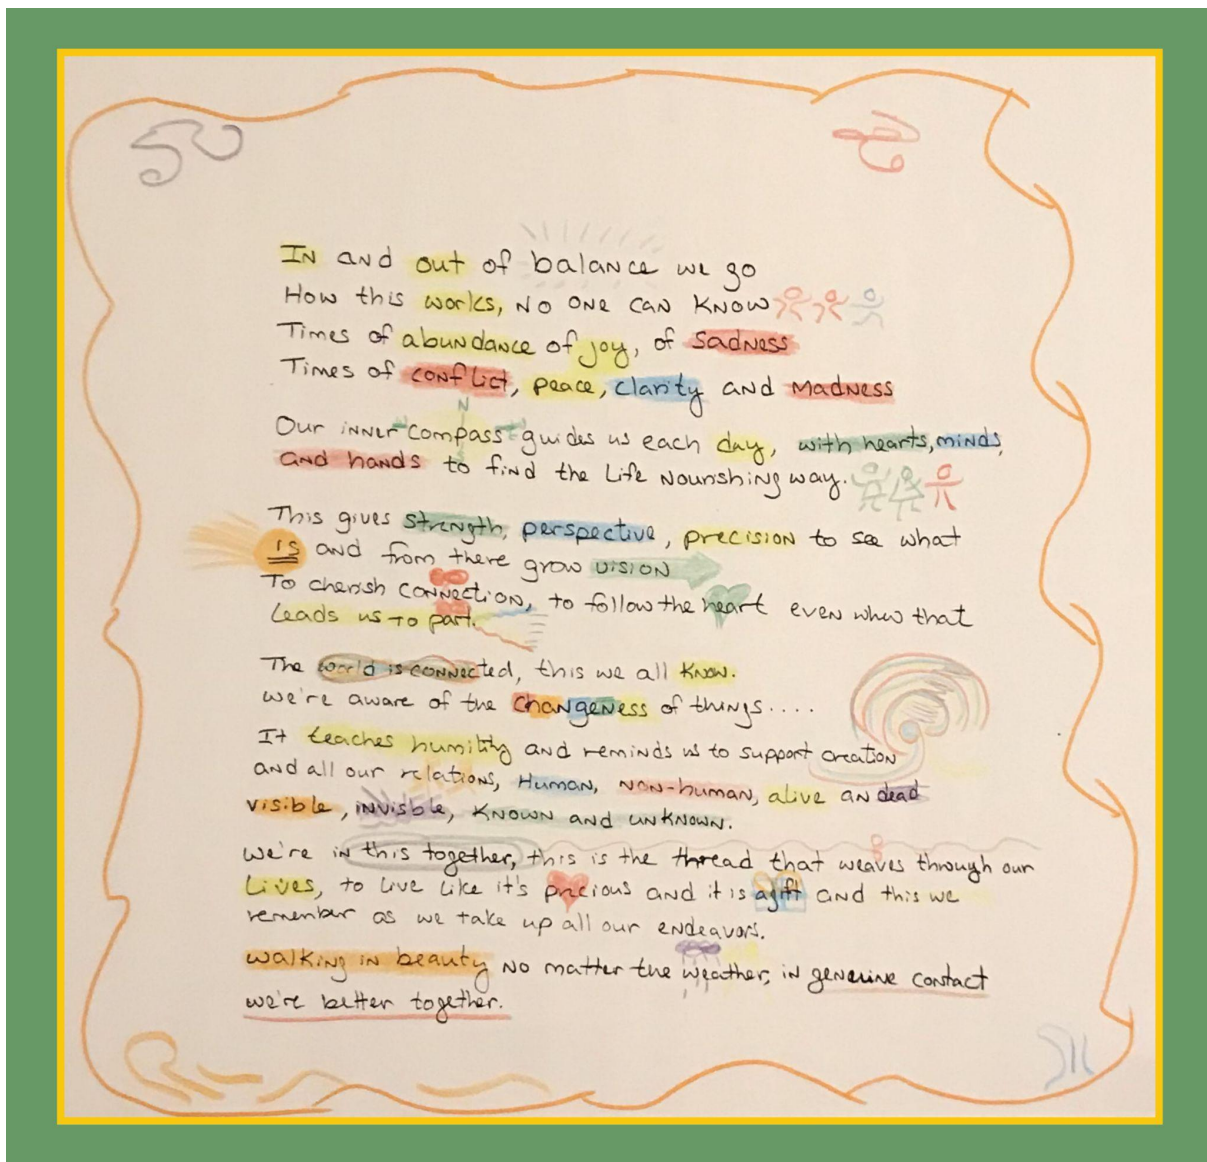 In and out of balance we go
How this works, no one can know
Times of abundance of joy, of sadness
Times of conflict, peace, clarity and madness
Our inner compass guides us each day, with hearts, minds,
and hands to find the life nourishing way.
This gives strength, perspective, precision to see what
is and from there grow vision
To cherish connection, to follow the heart even when that
leads us to part.
The world is connected, this we all know.
We're aware of the changeness of things....
It teaches humility and reminds us to support creation
and all our relations, Human, non-human, alive an dead
visible, invisble, known and unknown.
We're in this together, this is the thread that weaves through our
lives, to live like it's precious and it is a gift and this we
remember as we take up all our endeavors.
Walking in beauty no matter the weather, in genuine contact
we're better together.